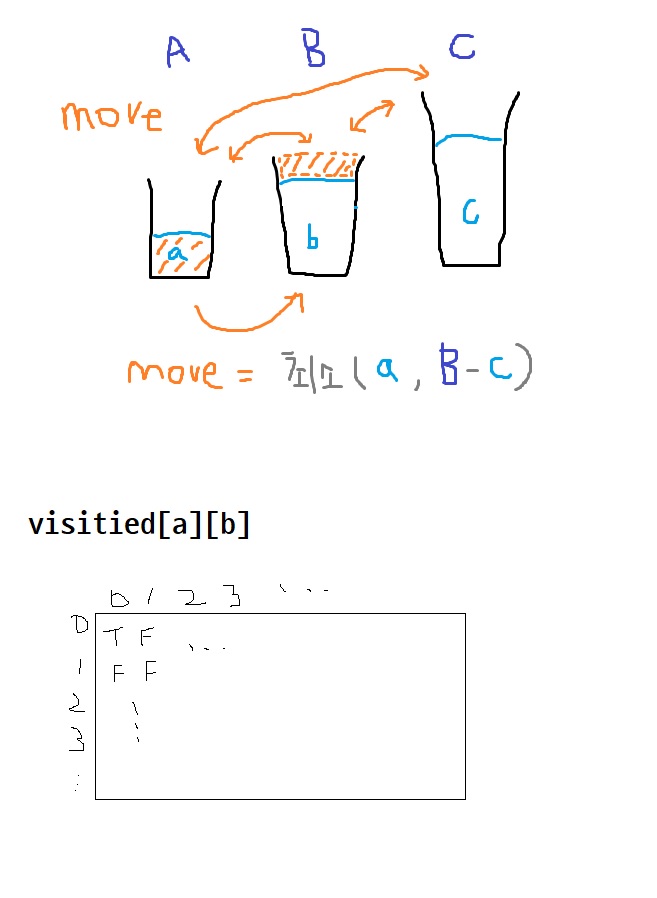 A B C
move
a b c
move = 최소(a, B-c)
visitied[a][b]
0 1 2 3 ...
0 T F ...
1 F F
2 ⋮
3
⋮